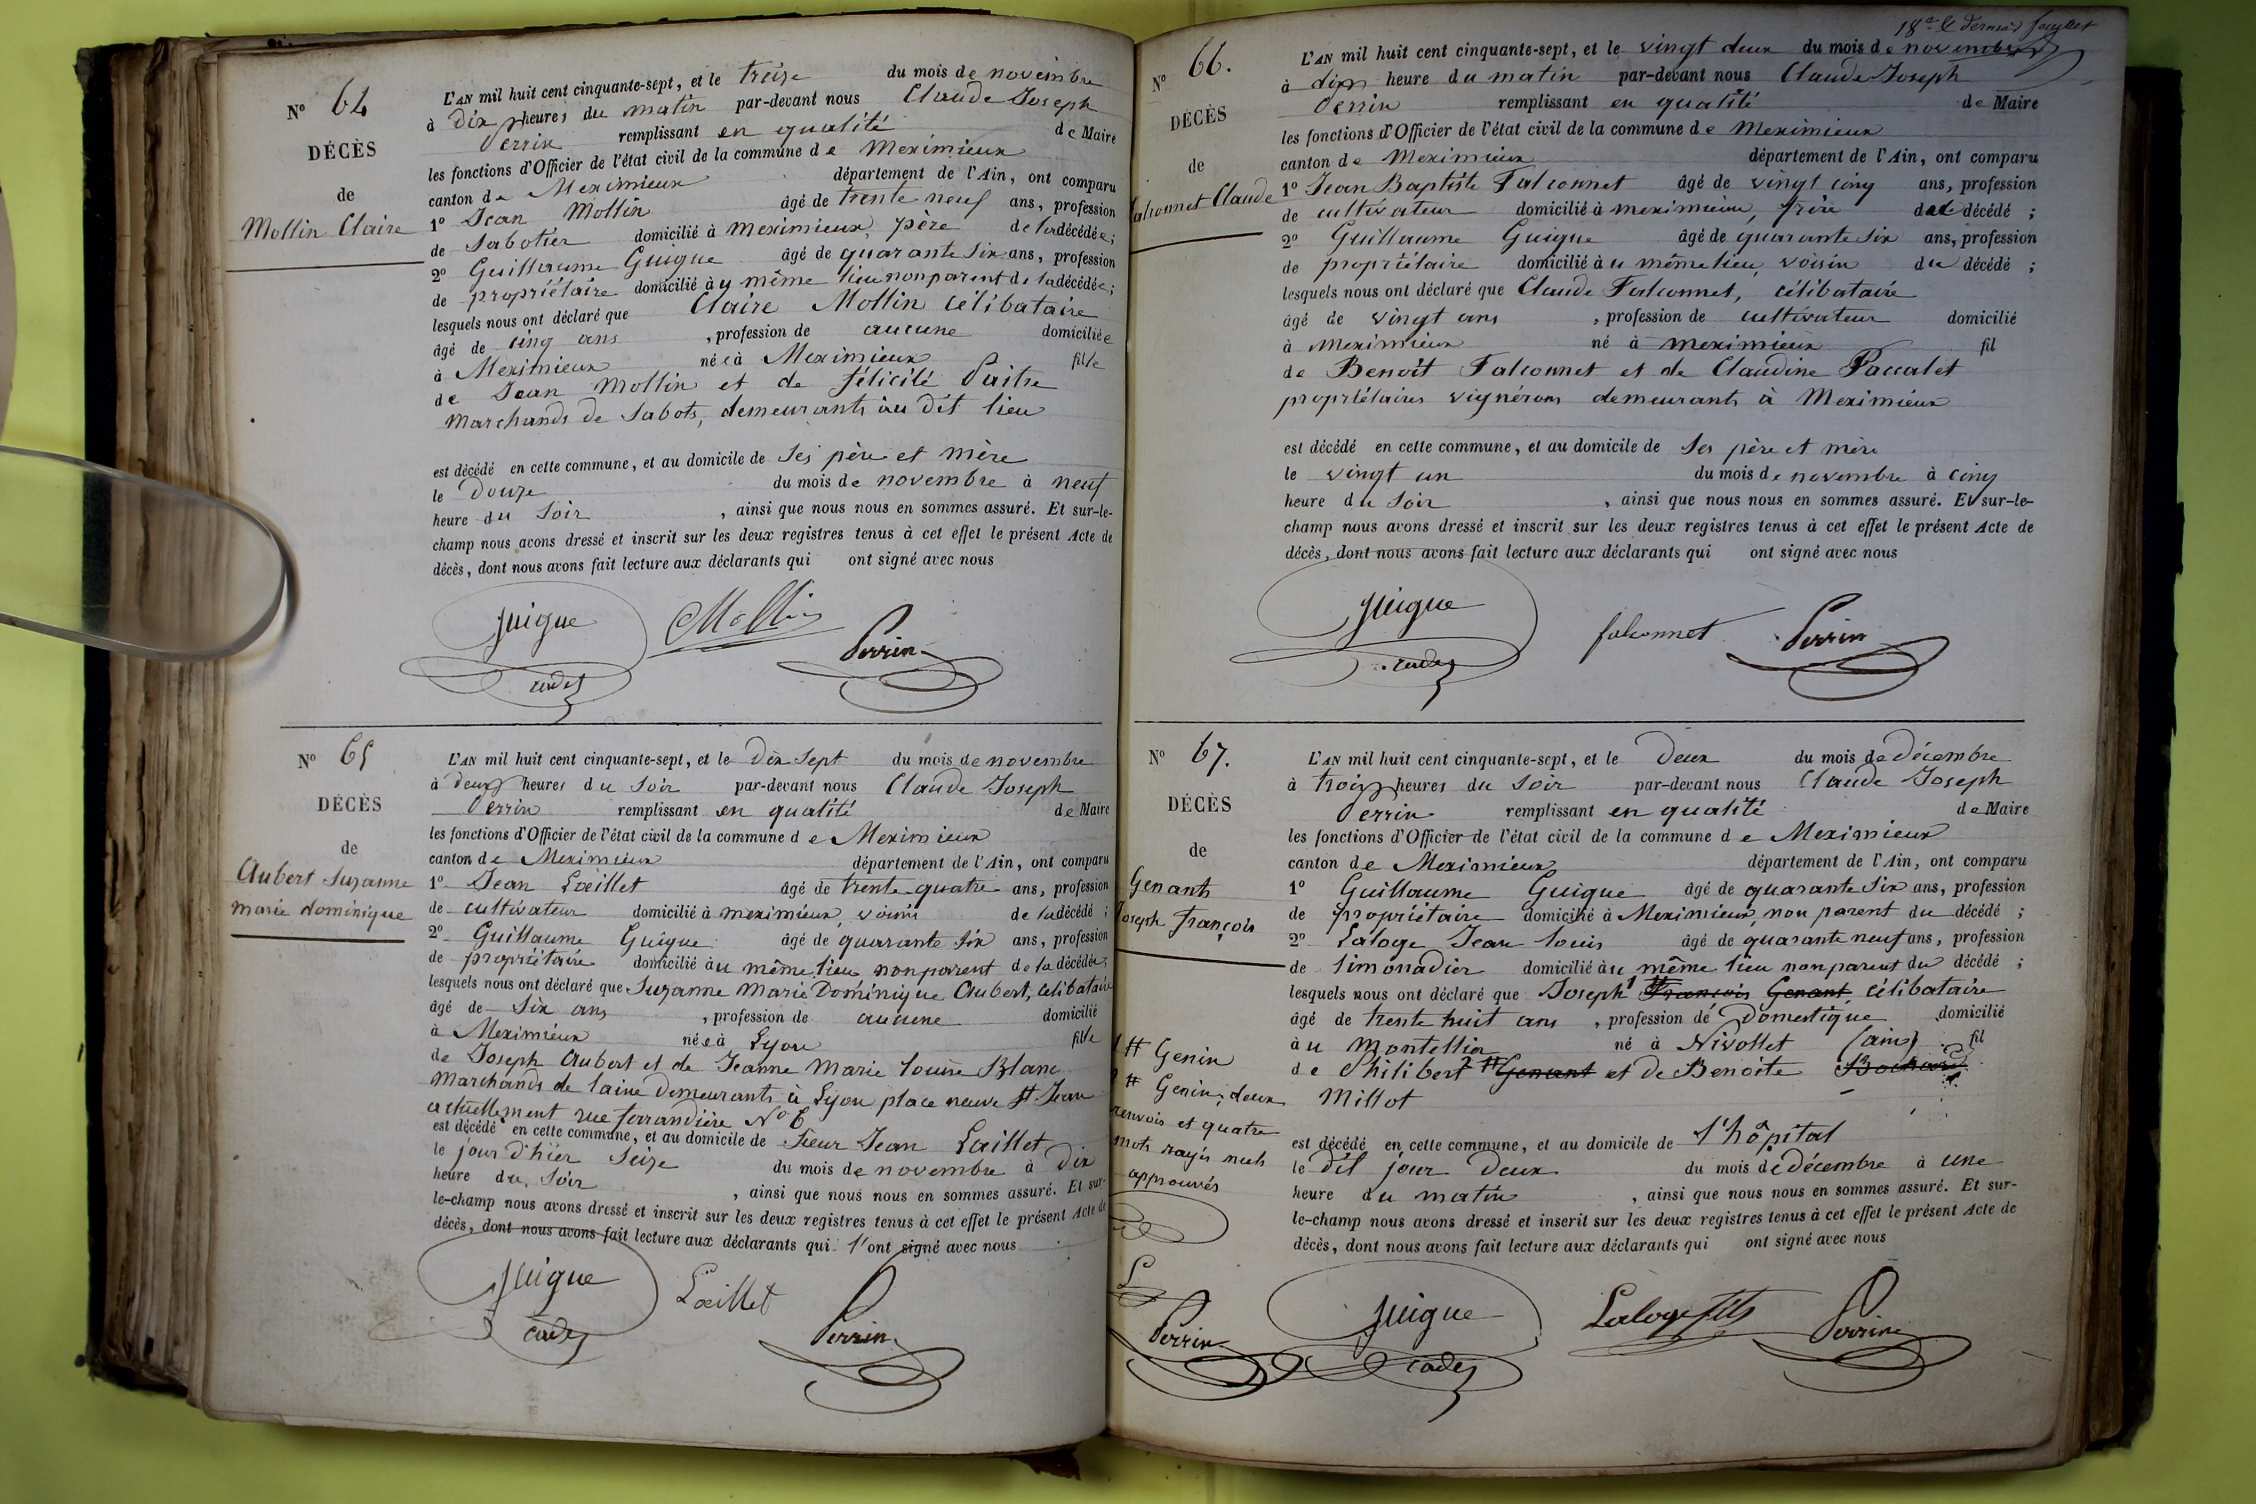 N° 64
DÉCÈS
de
Mollin Claire
L'AN mil huit cent cinquante-sept, et le treize du mois de novembre
à dix heures du matin par-devant nous Claude Joseph
Perrin remplissant en qualité de Maire
les fonctions d'Officier de l'état civil de la commune de Meximieux
canton de Meximieux département de l'Ain, ont comparu
1° Jean Mollin âgé de trente neuf ans, profession
de Sabotier domicilié à Meximieux, père de la décédée;
2° Guillaume Guigue âgé de quarante six ans, profession
de propriétaire domicilié au même lieu non parent de la décédée;
lesquels nous ont déclaré que Claire Mollin célibataire
âgé de cinq ans, profession de aucune domiciliée
à Meximieux née à Meximieux fille
de Jean Mollin et de félicité Paitre
Marchands de Sabots, demeurants au dit lieu
est décédé en cette commune, et au domicile de Ses père et mère
le Douze du mois de novembre à neuf
heure du Soir, ainsi que nous nous en sommes assuré. Et sur-le-
champ nous avons dressé et inscrit sur les deux registres tenus à cet effet le présent Acte de
décès, dont nous avons fait lecture aux déclarants qui ont signé avec nous
Guigue Mollin Perrin
N° 65
DÉCÈS
de
Aubert Suzanne
marie dominique
L'AN mil huit cent cinquante-sept, et le Dix Sept du mois de novembre
à deux heures du Soir par-devant nous Claude Joseph
Perrin remplissant en qualité de Maire
les fonctions d'Officier de l'état civil de la commune de Meximieux
canton de Meximieux département de l'Ain, ont comparu
1° Jean Lœillet âgé de trente quatre ans, profession
de cultivateur domicilié à meximieux, voisin de la décédé;
2° Guillaume Guigue âgé de quarante six ans, profession
de propriétaire domicilié au même lieu non parent de la décédée;
lesquels nous ont déclaré que Suzanne Marie Dominique Aubert, célibataire
âgé de Six ans, profession de aucune domicilié
à Meximieux née à Lyon fille
de Joseph Aubert et de Jeanne Marie Louise Blanc
Marchands de laine Demeurants à Lyon place neuve St Jean
actuellement rue ferrandière N° 6
est décédé en cette commune, et au domicile de Sieur Jean Lœillet
le jour d'hier Seize du mois de novembre à Dix
heure du Soir, ainsi que nous nous en sommes assuré. Et sur-
le-champ nous avons dressé et inscrit sur les deux registres tenus à cet effet le présent Acte de
décès, dont nous avons fait lecture aux déclarants qui l'ont signé avec nous
Guigue Lœillet Perrin
18e & dernier feuillet
N° 66.
DÉCÈS
de
falconnet Claude
L'AN mil huit cent cinquante-sept, et le vingt deux du mois de novembre
à dix heure du matin par-devant nous Claude Joseph
Perrin remplissant en qualité de Maire
les fonctions d'Officier de l'état civil de la commune de Meximieux
canton de Meximieux département de l'Ain, ont comparu
1° Jean Baptiste Falconnet âgé de vingt cinq ans, profession
de cultivateur domicilié à meximieux, frère du décédé;
2° Guillaume Guigue âgé de quarante six ans, profession
de propriétaire domicilié au même lieu, voisin du décédé;
lesquels nous ont déclaré que Claude Falconnet, célibataire
âgé de vingt ans, profession de cultivateur domicilié
à meximieux né à meximieux fil
de Benoît Falconnet et de Claudine Paccalet
propriétaires vignérons demeurants à Meximieux
est décédé en cette commune, et au domicile de Ses père et mère
le vingt un du mois de novembre à cinq
heure du Soir, ainsi que nous nous en sommes assuré. Et sur-le-
champ nous avons dressé et inscrit sur les deux registres tenus à cet effet le présent Acte de
décès, dont nous avons fait lecture aux déclarants qui ont signé avec nous
Guigue falconnet Perrin
N° 67.
DÉCÈS
de
Genant
Joseph françois
L'AN mil huit cent cinquante-sept, et le Deux du mois de décembre
à trois heures du Soir par-devant nous Claude Joseph
Perrin remplissant en qualité de Maire
les fonctions d'Officier de l'état civil de la commune de Meximieux
canton de Meximieux département de l'Ain, ont comparu
1° Guillaume Guigue âgé de quarante Six ans, profession
de propriétaire domicilié à Meximieux, non parent du décédé;
2° Laloge Jean Louis âgé de quarante neuf ans, profession
de limonadier domicilié au même lieu non parent du décédé;
lesquels nous ont déclaré que Joseph 1 # François Genant célibataire
âgé de trente huit ans, profession de Domestique domicilié
au Montellier né à Nivollet (ain) fil
de Philibert 2 # Genant et de Benoite
Millot
est décédé en cette commune, et au domicile de l'hôpital
le dit jour Deux du mois de décembre à une
heure du matin, ainsi que nous nous en sommes assuré. Et sur-
le-champ nous avons dressé et inscrit sur les deux registres tenus à cet effet le présent Acte de
décès, dont nous avons fait lecture aux déclarants qui ont signé avec nous
1 # Genin
2 # Genin, deux
renvois et quatre
mots rayés nuls
approuvés
L
Perrin Guigue Laloge fils Perrin